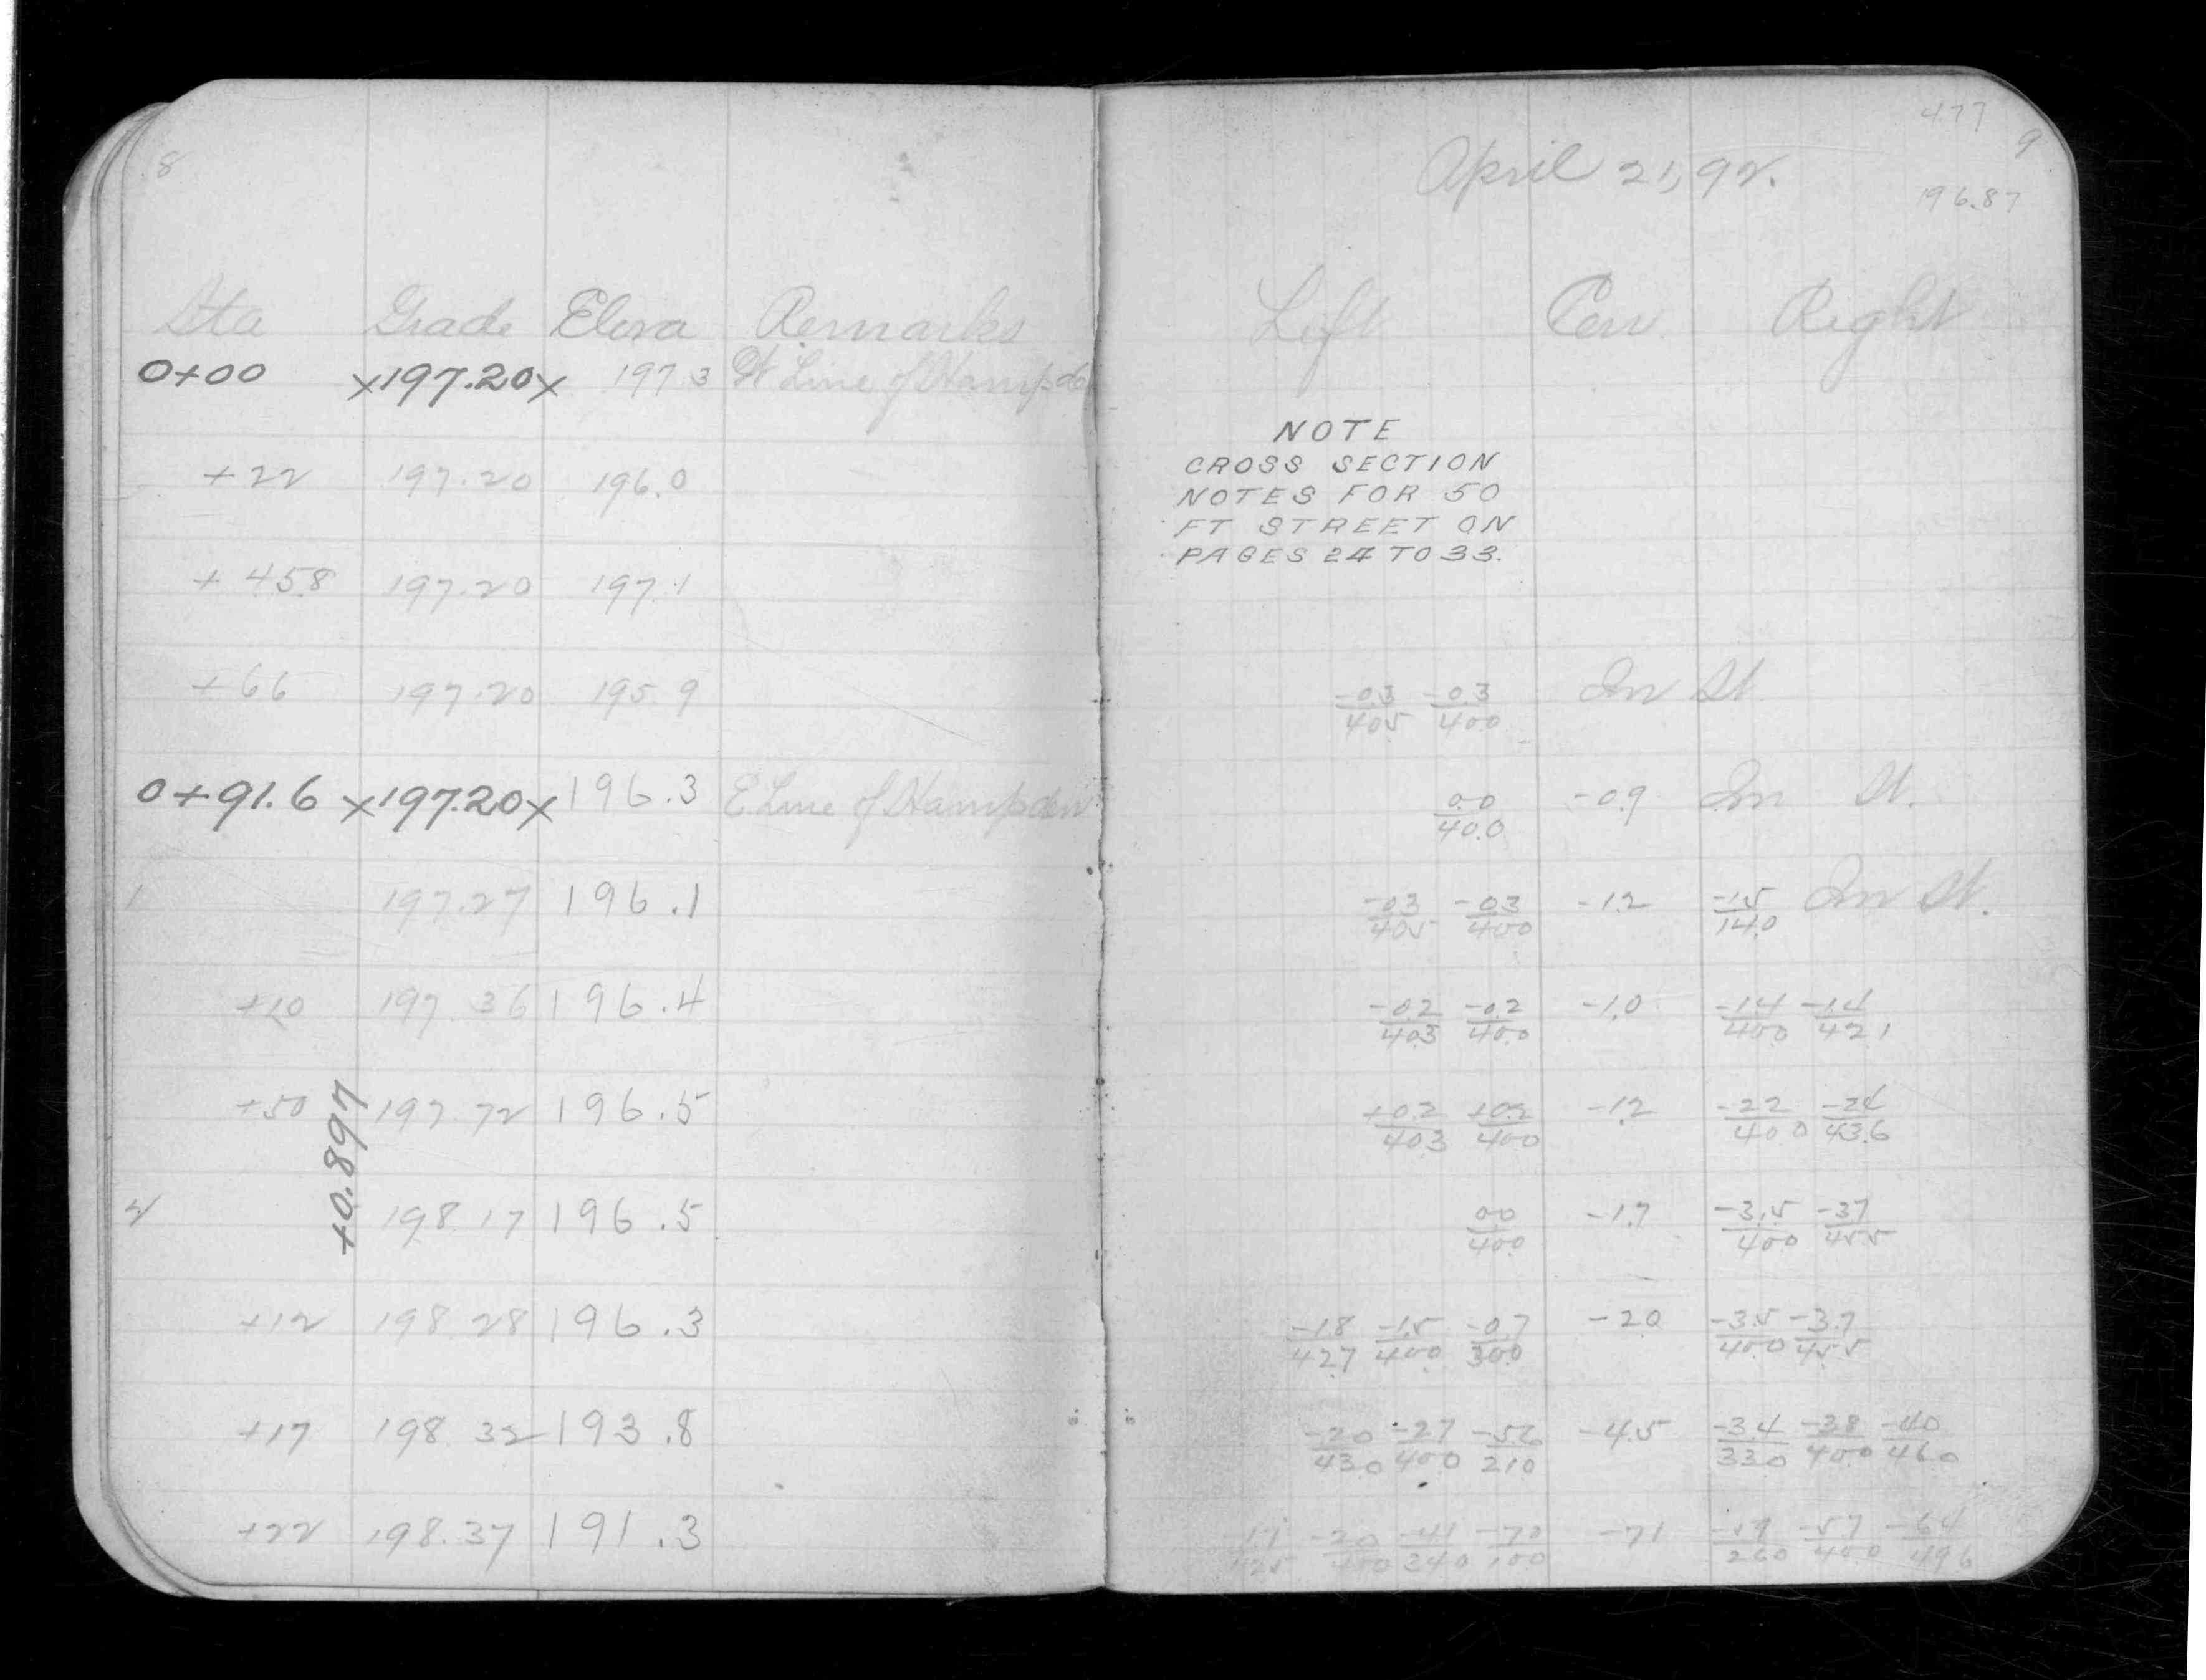 8
Sta Grade Eleva Remarks
0+00 x197.20x 197.3 W Line of Hampden
+22 197.20 196.0
+45.8 197.20 197.1
+66 197.20 195.9
0+91.6 x197.20x 196.3 E. Line of Hampden
1 197.27 196.1
+10 197.36 196.4
+50 197.72 196.5
+0.897
2 198.17 196.5
+12 198.28 196.3
+17 198.32 193.8
+22 198.37 191.3
4.77
9
April 21, 92.
196.87
Left Cen Right
NOTE
CROSS SECTION
NOTES FOR 50
FT STREET ON
PAGES 24 TO 33.
-0.3 -0.3 In St
40.5 40.0
0.0 -0.9 In St.
40.0
-0.3 -0.3 -1.2 -1.5 In St.
40.5 40.0 14.0
-0.2 -0.2 -1.0 -1.4 -1.4
40.3 40.0 40.0 42.1
+0.2 +0.2 -1.2 -2.2 -2.4
40.3 40.0 40.0 43.6
0.0 -1.7 -3.5 -3.7
40.0 40.0 45.5
-1.8 -1.5 -0.7 -2.0 -3.5 -3.7
42.7 40.0 30.0 40.0 45.5
-2.0 -2.7 -5.2 -4.5 -3.4 -3.8 -4.0
43.0 40.0 21.0 33.0 40.0 46.0
-2.0 -4.1 -7.0 -7.1 -5.7 -6.4
42.5 40.0 34.0 10.0 26.0 40.0 49.6